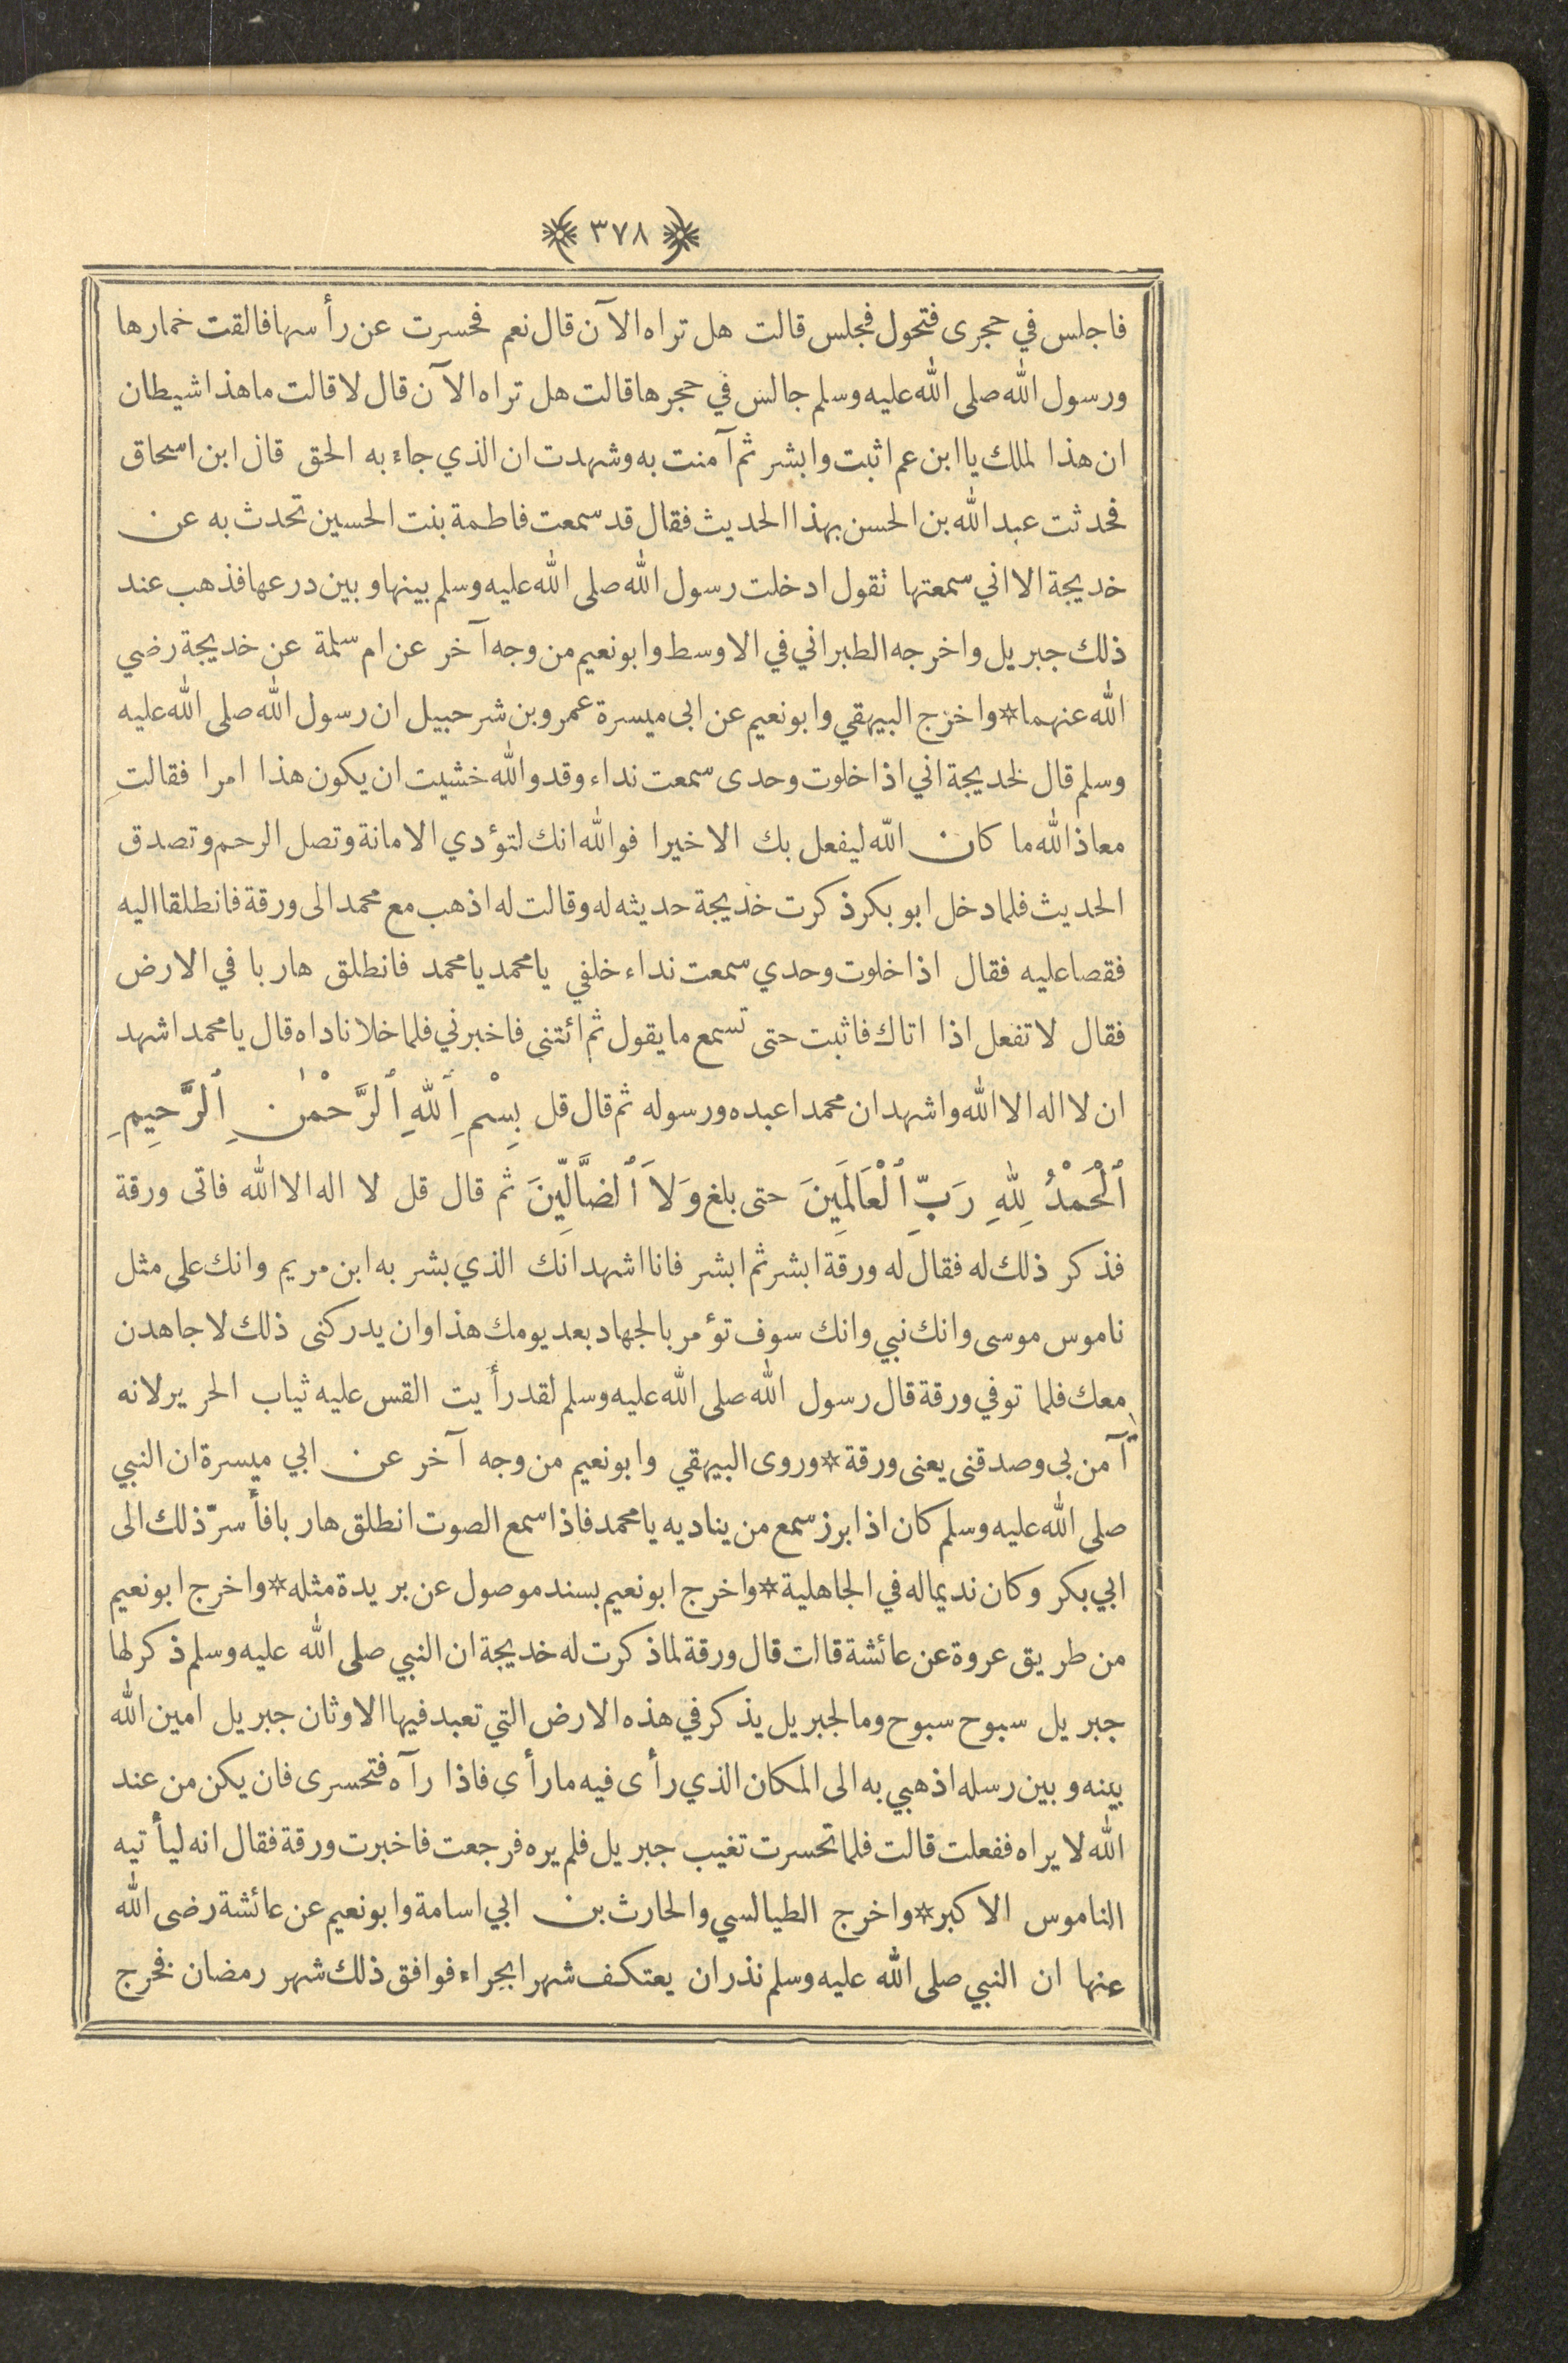 ٣٧٨
فاجلس في حجرى فتحول فجلس قالت هل تراه الآن قال نعم فحسرت عن رأسها فالقت خمارها
ورسول الله صلى الله عليه وسلم جالس في حجرها قالت هل تراه الآن قال لا قالت ما هذا شيطان
ان هذا لملك يا ابن عم اثبت وابشر ثم آمنت به وشهدت ان الذي جاء به الحق قال ابن اسحاق
فحدثت عبد الله بن الحسن بهذا الحديث فقال قد سمعت فاطمة بنت الحسين تحدث به عن
خديجة الا اني سمعتها تقول ادخلت رسول الله صلى الله عليه وسلم بينها وبين درعها فذهب عند
ذلك جبريل واخرجه الطبراني في الاوسط وابو نعيم من وجه آخر عن ام سلمة عن خديجة رضي
الله عنهما * واخرج البيهقي وابو نعيم عن ابى ميسرة عمرو بن شرحبيل ان رسول الله صلى الله عليه
وسلم قال لخديجة اني اذا خلوت وحدى سمعت نداء وقد والله خشيت ان يكون هذا امرا فقالت
معاذ الله ما كان الله ليفعل بك الا خيرا فوالله انك لتؤدي الامانة وتصل الرحم وتصدق
الحديث فلما دخل ابو بكر ذكرت خديجة حديثه له وقالت له اذهب مع محمد الى ورقة فانطلقا اليه
فقصا عليه فقال اذا خلوت وحدي سمعت نداء خلفي يا محمد يا محمد فانطلق هاربا في الارض
فقال لا تفعل اذا اتاك فاثبت حتى تسمع ما يقول ثم ائتنى فاخبرني فلما خلا ناداه قال يا محمد اشهد
ان لا اله الا الله واشهد ان محمدا عبده ورسوله ثم قال قل بِسْمِ ٱللهِ ٱلرَّحْمٰنِ ٱلرَّحِيمِ
ٱلْحَمْدُ لِلهِ رَبِّ ٱلْعَالَمِينَ حتى بلغ وَلاَ ٱلضَّالِّينَ ثم قال قل لا اله الا الله فاتى ورقة
فذكر ذلك له فقال له ورقة ابشر ثم ابشر فانا اشهد انك الذي بشر به ابن مريم وانك على مثل
ناموس موسى وانك نبي وانك سوف تؤمر بالجهاد بعد يومك هذا وان يدركنى ذلك لاجاهدن
معك فلما توفي ورقة قال رسول الله صلى الله عليه وسلم لقد رأيت القس عليه ثياب الحرير لانه
آمن بى وصدقنى يعنى ورقة * وروى البيهقي وابو نعيم من وجه آخر عن ابي ميسرة ان النبي
صلى الله عليه وسلم كان اذا برز سمع من يناديه يا محمد فاذا سمع الصوت انطلق هاربا فأسرّ ذلك الى
ابي بكر وكان نديما له في الجاهلية * واخرج ابو نعيم بسند موصول عن بريدة مثله * واخرج ابو نعيم
من طريق عروة عن عائشة قالت قال ورقة لما ذكرت له خديجة ان النبي صلى الله عليه وسلم ذكر لها
جبريل سبوح سبوح وما لجبريل يذكر في هذه الارض التي تعبد فيها الاوثان جبريل امين الله
بينه وبين رسله اذهبي به الى المكان الذي رأى فيه ما رأى فاذا رآه فتحسرى فان يكن من عند
الله لا يراه ففعلت قالت فلما تحسرت تغيب جبريل فلم يره فرجعت فاخبرت ورقة فقال انه ليأتيه
الناموس الاكبر * واخرج الطيالسي والحارث بن ابي اسامة وابو نعيم عن عائشة رضى الله
عنها ان النبي صلى الله عليه وسلم نذر ان يعتكف شهرا بحراء فوافق ذلك شهر رمضان فخرج